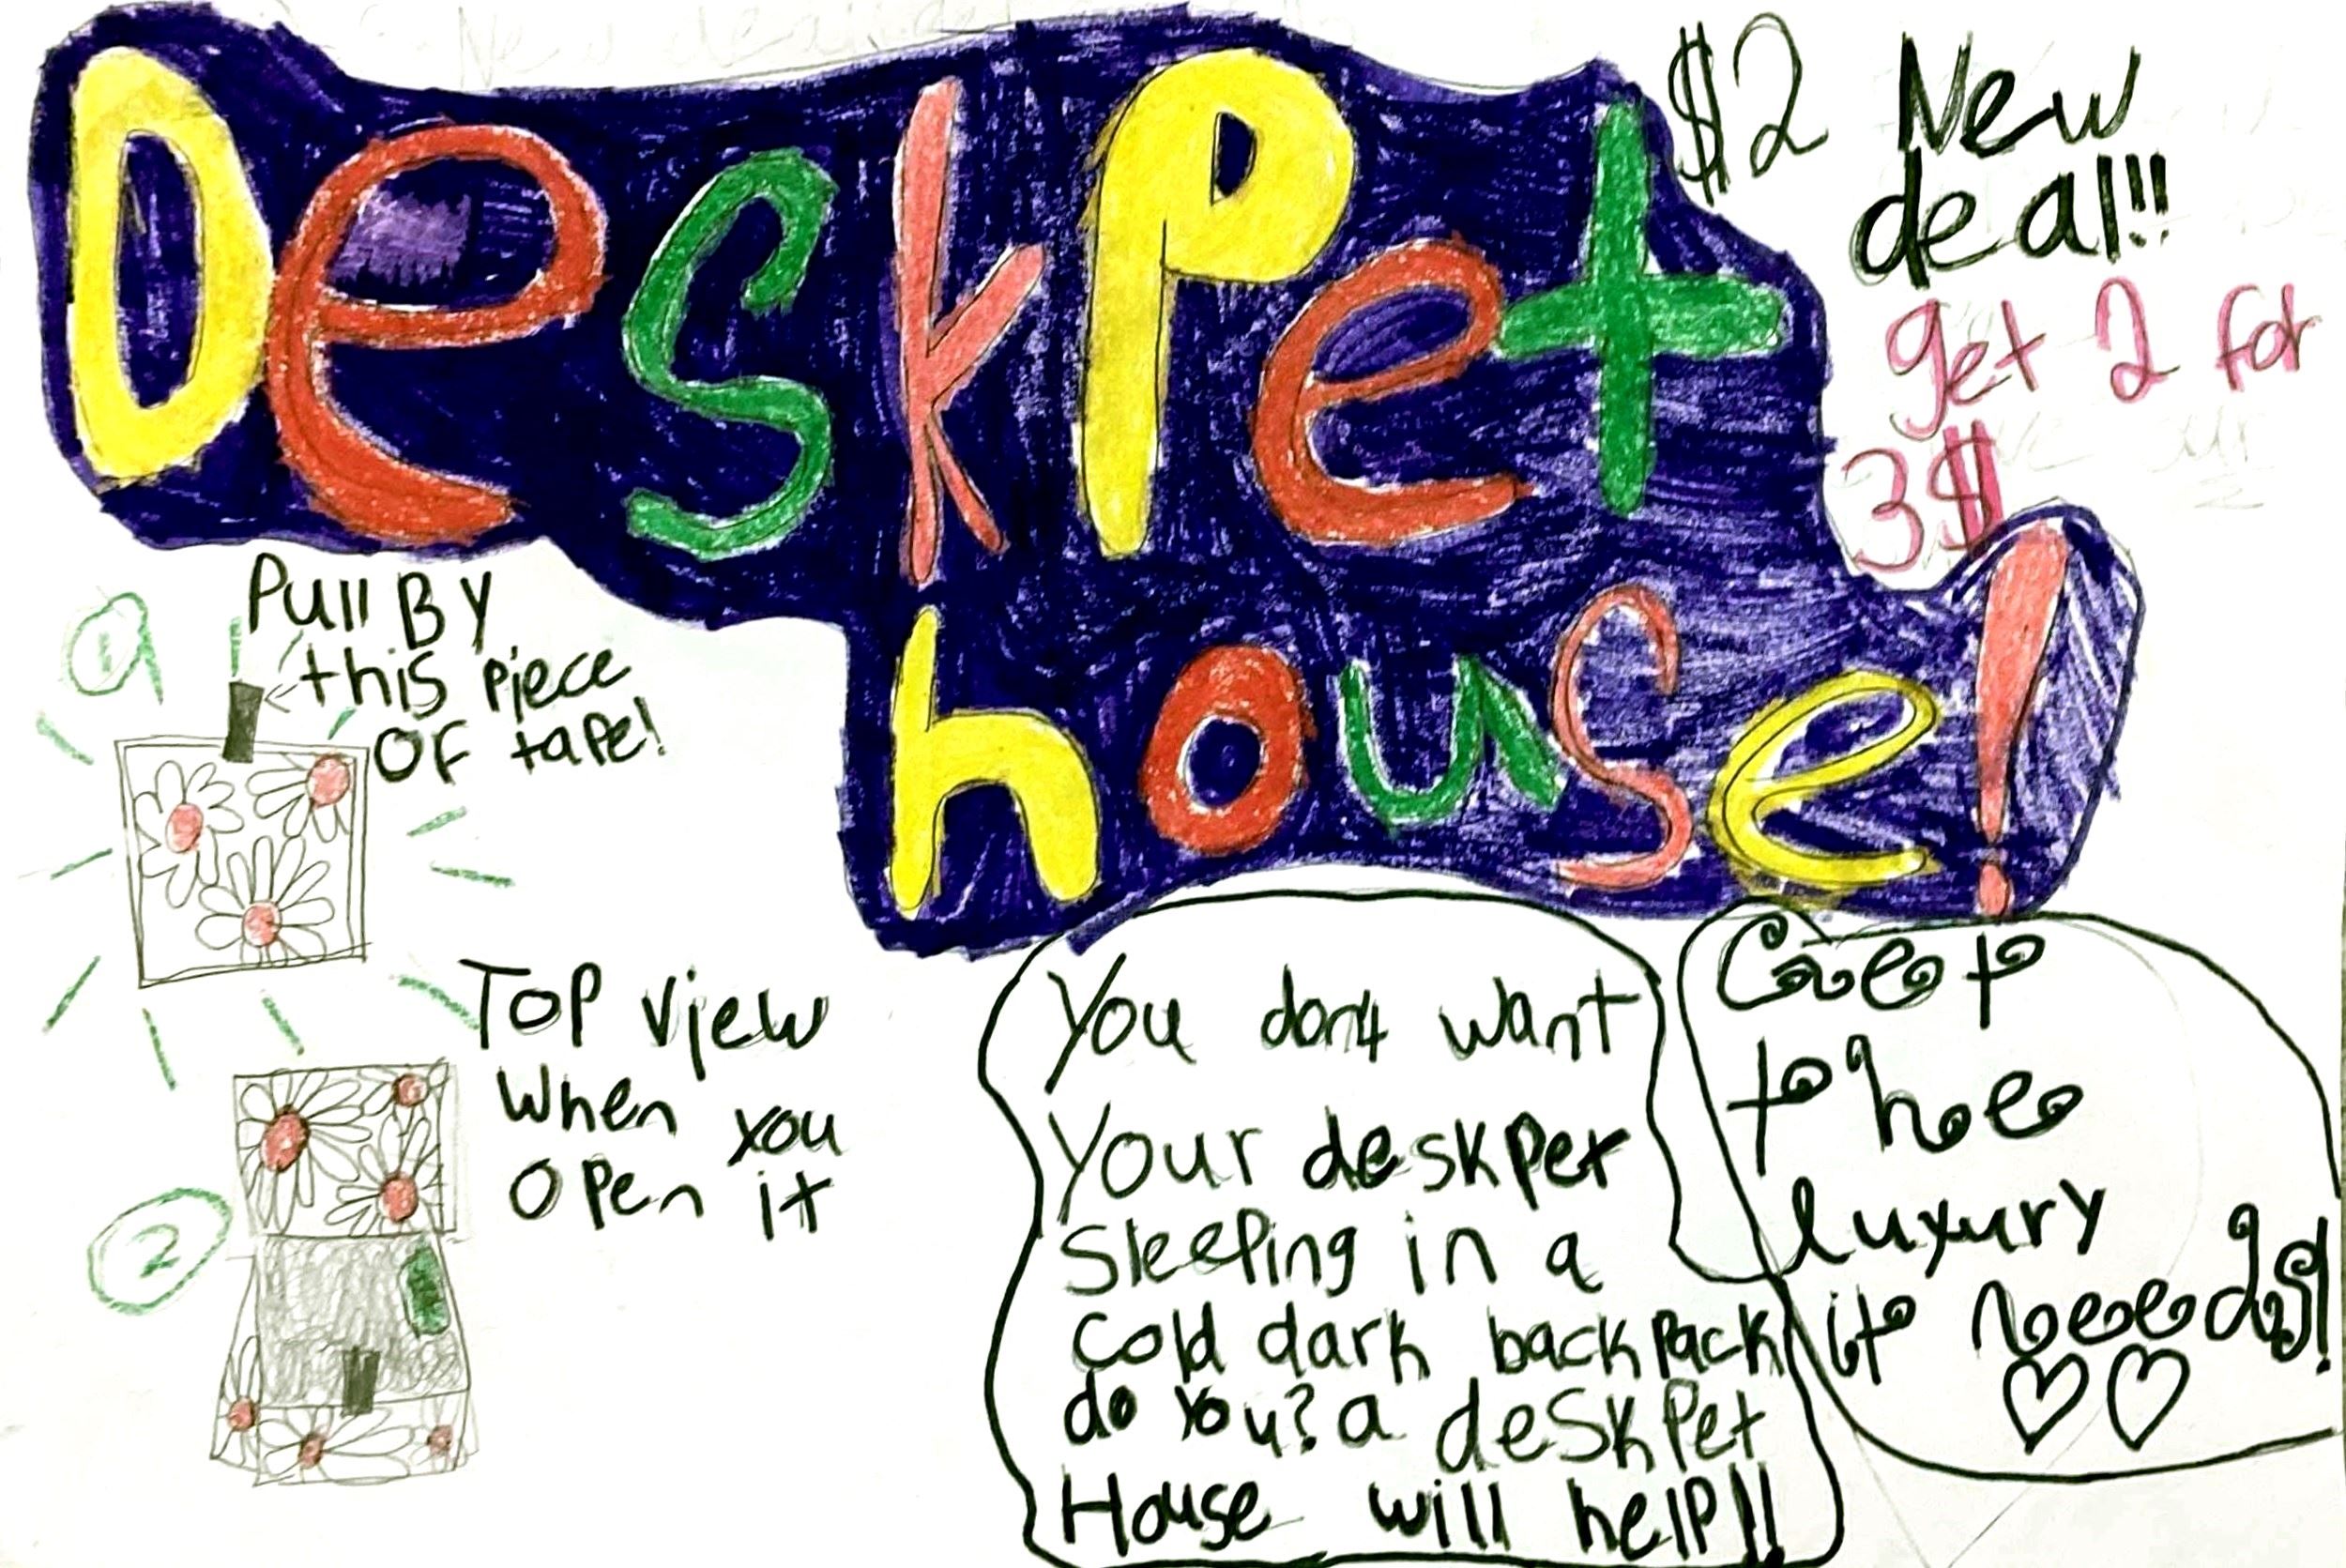 DeskPet
house!
$2
New
deal!!
get 2 for
3$
1
Pull By
this piece
OF tape!
TOP view
When you
open it
2
You don't want
Your deskpet
Sleeping in a
cold dark backpack
do you? a deskpet
House will help!!
Get
the
luxury
it needs!